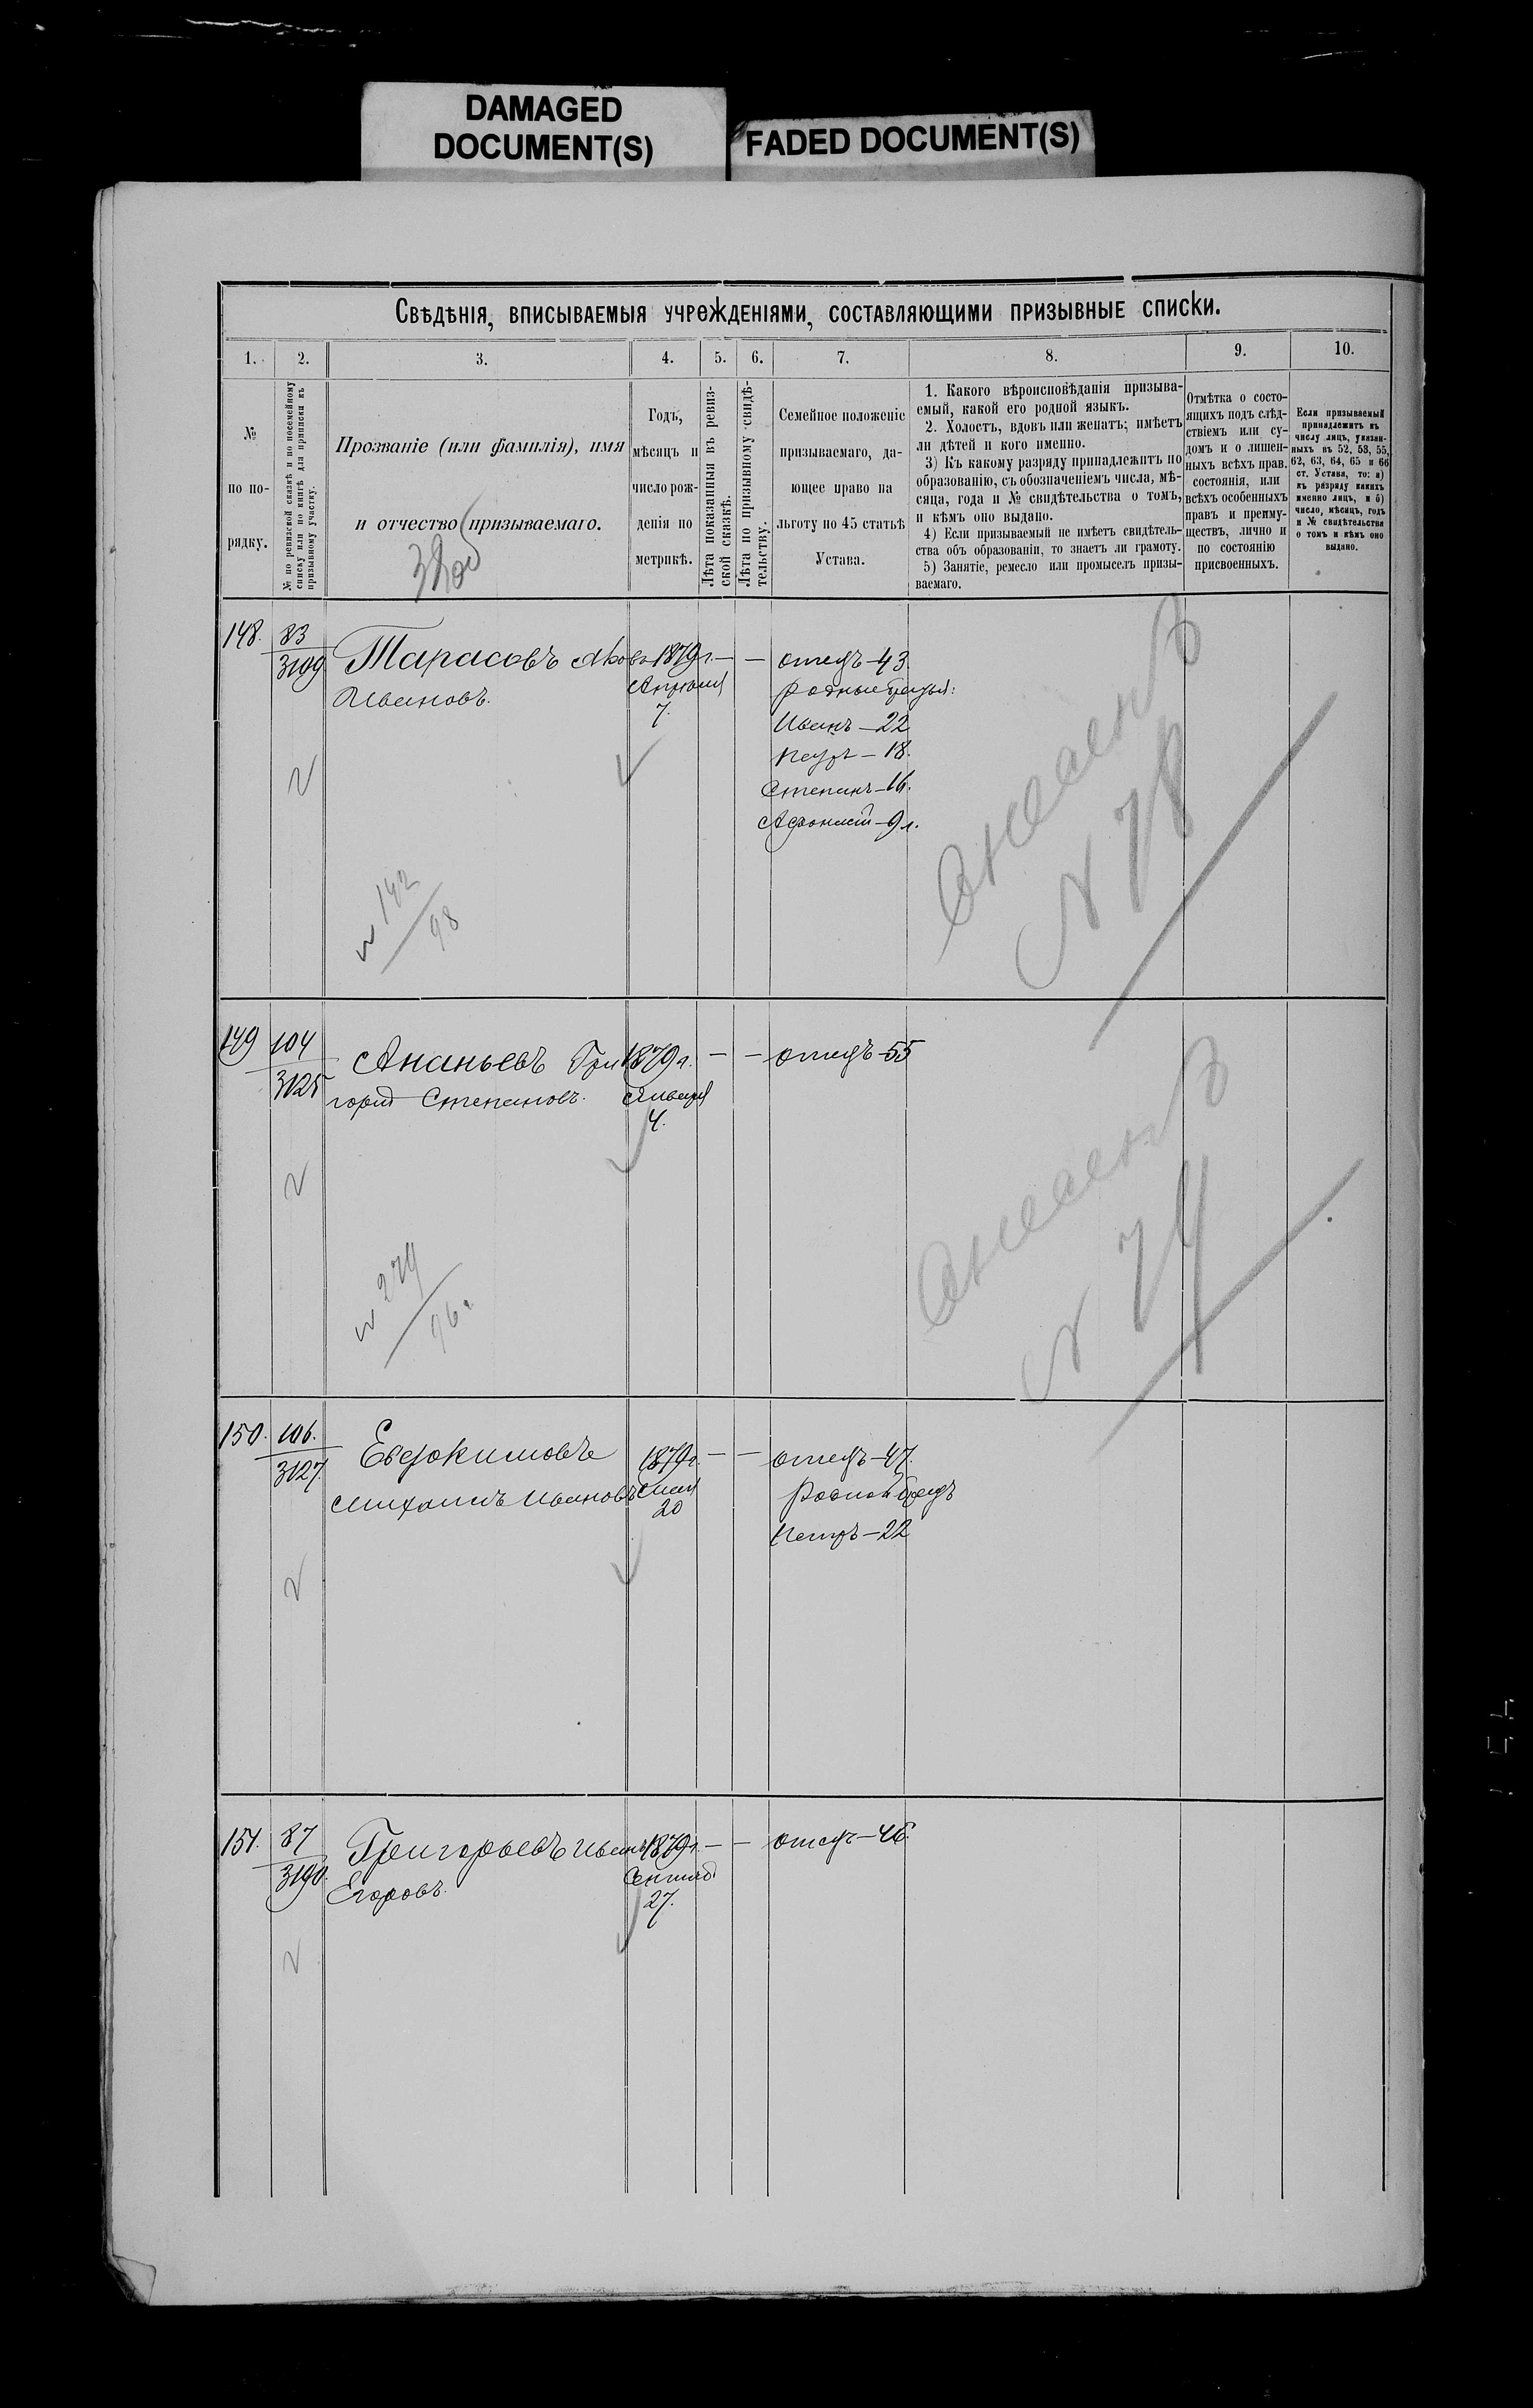 DAMAGED
DOCUMENT(S)
FADED DOCUMENT(S)
Свѣдѣнія, вписываемыя учрежденіями, составляющими призывные списки.
1. 2. 3. 4. 5. 6. 7. 8. 9. 10.
№
по по-
рядку.
№ по ревизской сказкѣ и по посемейному
списку или по книгѣ для приписки къ
призывному участку.
Прозваніе (или фамилія), имя
и отчество призываемаго.
Годъ,
мѣсяцъ и
число рож-
денія по
метрикѣ.
Лѣта показанныя въ ревиз-
ской сказкѣ.
Лѣта по призывному свидѣ-
тельству.
Семейное положеніе
призываемаго, да-
ющее право на
льготу по 45 статьѣ
Устава.
1. Какого вѣроисповѣданія призыва-
емый, какой его родной языкъ.
2. Холостъ, вдовъ или женатъ; имѣетъ
ли дѣтей и кого именно.
3) Къ какому разряду принадлежитъ по
образованію, съ обозначеніемъ числа, мѣ-
сяца, года и № свидѣтельства о томъ,
и кѣмъ оно выдано.
4) Если призываемый не имѣетъ свидѣтель-
ства объ образованіи, то знаетъ ли грамоту.
5) Занятіе, ремесло или промыселъ призы-
ваемаго.
Отмѣтка о состо-
ящихъ подъ слѣд-
ствіемъ или су-
домъ и о лишен-
ныхъ всѣхъ прав.
состоянія, или
всѣхъ особенныхъ
правъ и преиму-
ществъ, лично и
по состоянію
присвоенныхъ.
Если призываемый
принадлежитъ къ
числу лицъ, указан-
ныхъ въ 52, 53, 55,
62, 63, 64, 65 и 66
ст. Устава, то: а)
къ разряду какихъ
именно лицъ, и б)
число, мѣсяцъ, годъ
и № свидѣтельства
о томъ и кѣмъ оно
выдано.
148. 83 Тарасовъ Яковъ 1879 г. — — отецъ-43.
3109 Ивановъ. Апрѣля родные братья:
7. Иванъ-22
Петръ-18.
Степанъ-16.
Афонасій-9 л.
N 78
N 142
98
149 104 Ананьевъ Гри 1879 г. — — отецъ-55
3125 горій Степановъ. Января
4.
N 74
N 279
96.
150. 106. Евдокимовъ 1879 г. — — отецъ-47.
3127. Михаилъ Ивановъ 20 Родной братъ
Петръ-22
151. 87 Григорьевъ Иванъ 1879 г. — — отецъ-46.
3190. Егоровъ. Сентяб
27.